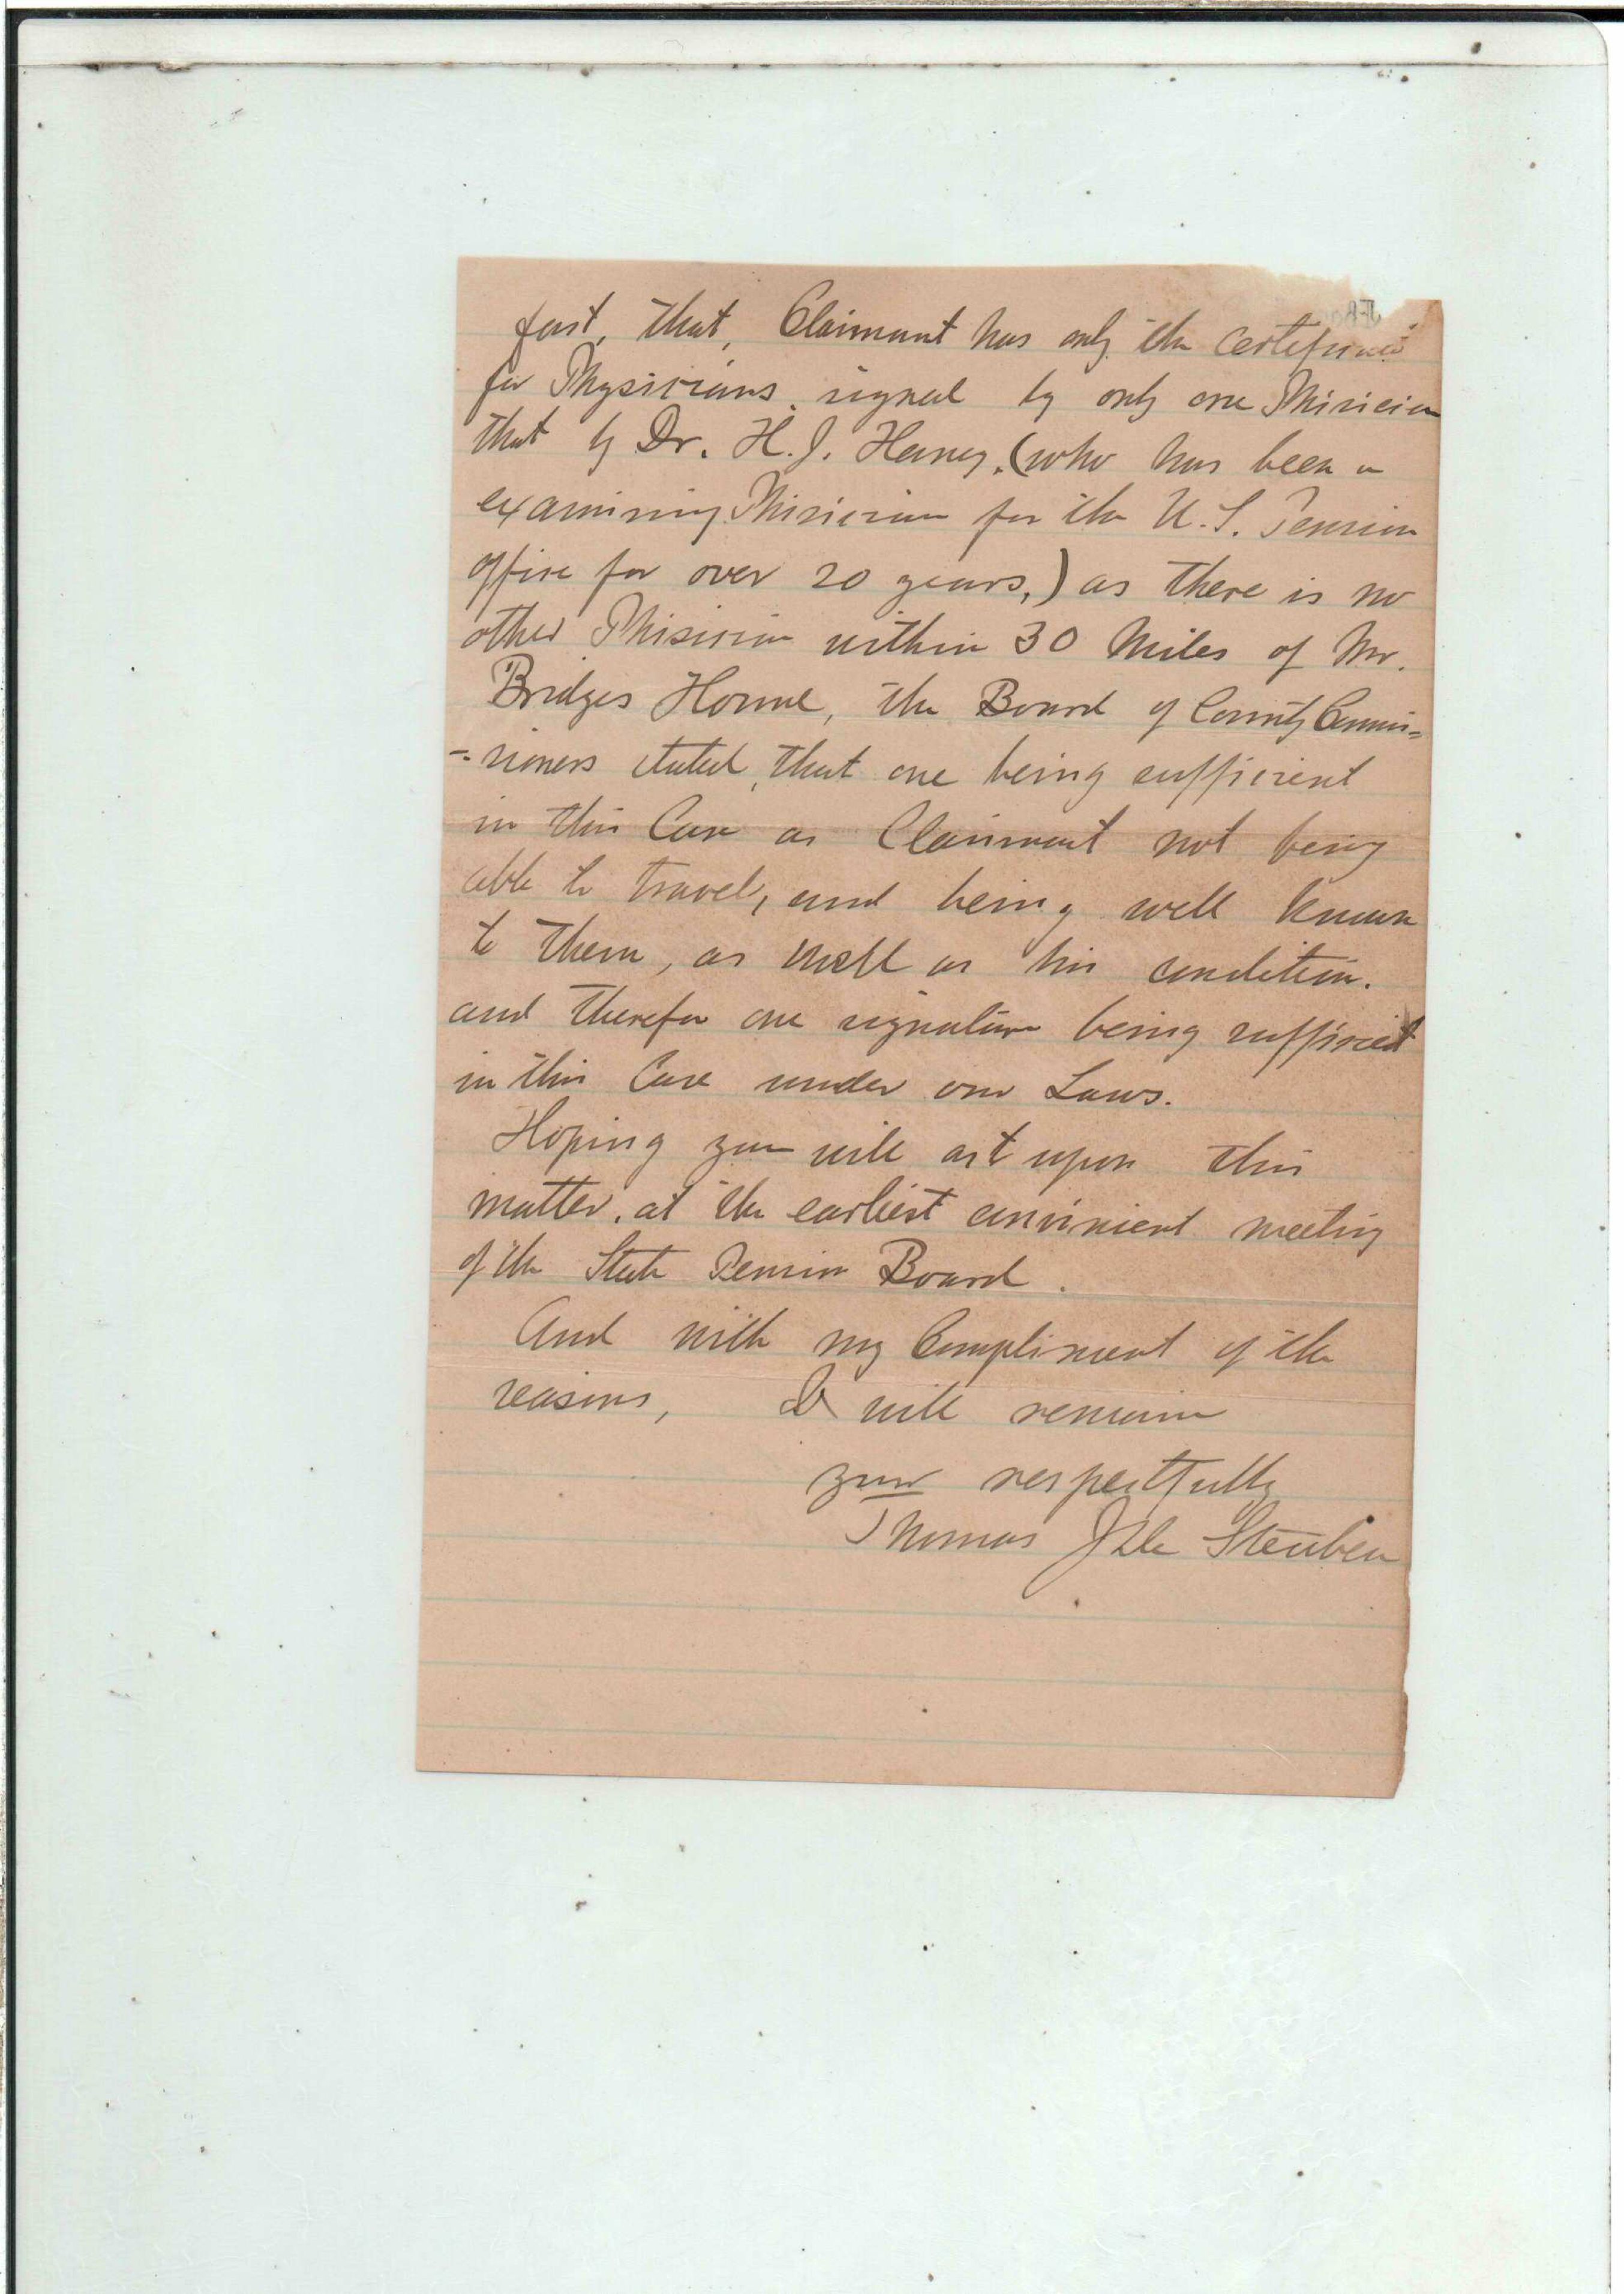 fact, that, Claimant has only the certificate
for Physicians signed by only one Phisician
that by Dr. H. J. Haney, (who has been a
examining Phisician for the U. S. Pension
office for over 20 years,) as there is no
other Phisician within 30 Miles of Mr.
Bridges Home, the Board of County Commis=
=sioners stated, that one being sufficient
in this Case as Claimant not being
able to travel, and being well known
to them, as well as his condition.
and therefor one signature being sufficient
in this Case under our Laws.
Hoping you will act upon this
matter, at the earliest convinient meeting
of the State Pension Board.
And with my Compliment of the
seasons, I will remain
your respectfully
Thomas Steuben